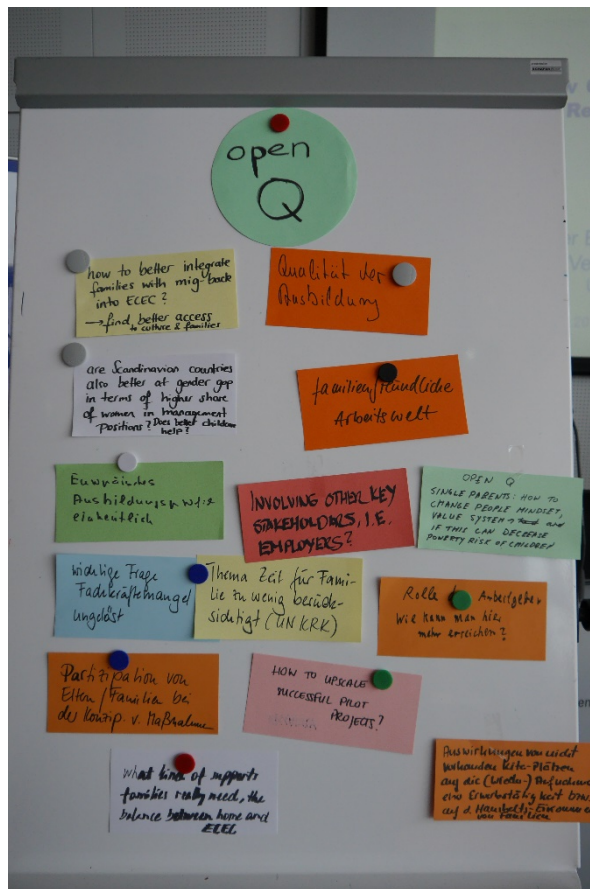 open
Q
how to better integrate
families with mig-back
into ECEC?
→ find better access
to culture & families
Qualität der
Ausbildung
are Scandinavian countries
also better at gender gap
in terms of higher share
of women in management
positions? Does better childcare
help?
familienfreundliche
Arbeitswelt
einheitlich
INVOLVING OTHER KEY
STAKEHOLDERS, I.E.
EMPLOYERS?
OPEN Q
SINGLE PARENTS: HOW TO
CHANGE PEOPLE MINDSET,
VALUE SYSTEM → and
IF THIS CAN DECREASE
POVERTY RISK OF CHILDREN
wichtige Frage
Fachkräftemangel
ungelöst
Thema Zeit für Fami-
lie zu wenig berück-
sichtigt (UN KRK)
Rolle Arbeitgeber
Wie kann man hier
mehr erreichen?
Partizipation von
Eltern / Familien bei
der Konzip. v. Maßnahme
HOW TO UPSCALE
SUCCESSFUL PILOT
PROJECTS?
what kind of supports
families really need, the
balance between home and
ECEC
Auswirkungen von nicht
vorhanden Kita-Plätzen
auf die (Wieder-) Aufnahme
eine Erwerbstätigkeit bzw.
auf d. Haushalts-Einkommen
von Familien